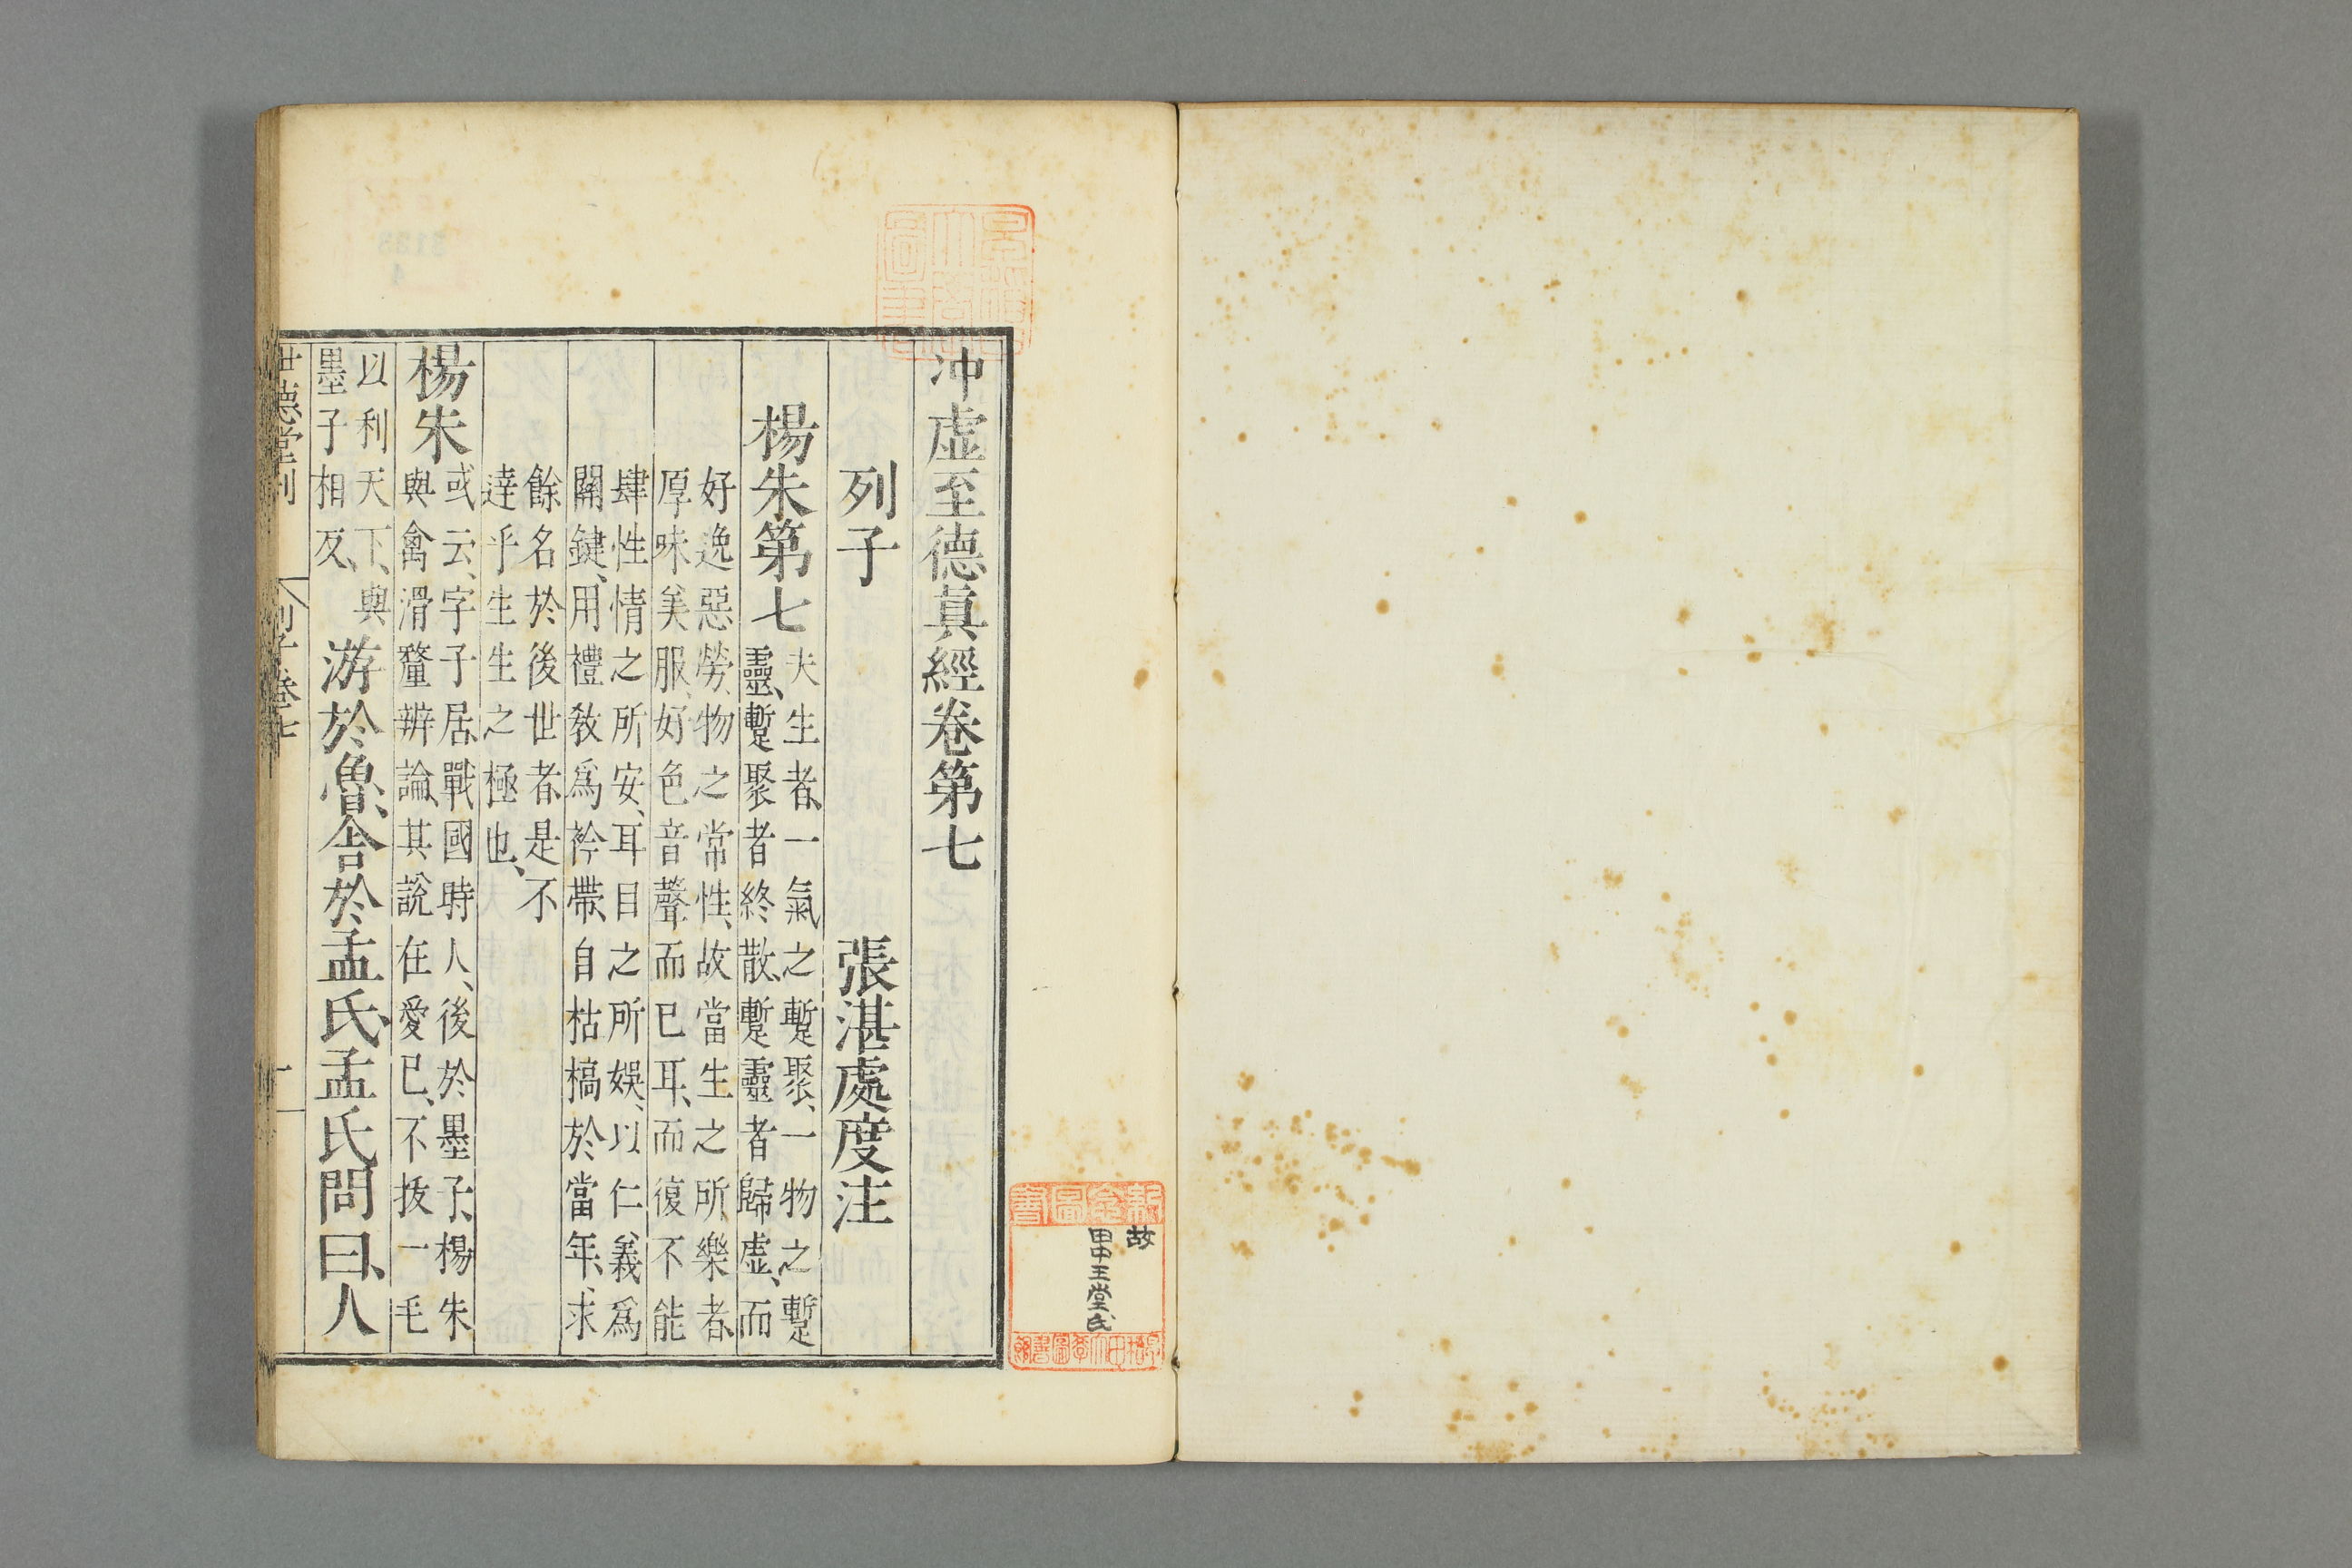 冲虛至德眞經卷第七
列子　張湛處度注
楊朱第七
夫生者、一氣之蹔聚、一物之蹔
靈、蹔聚者終散、蹔靈者歸虛、而
好逸惡勞、物之常性、故當生之所樂者、
厚味美服、好色音聲而已耳、而復不能
肆性情之所安、耳目之所娛、以仁義爲
關鍵、用禮敎爲衿帶、自枯槁於當年、求
餘名於後世者、是不
達乎生生之極也、
楊朱
或云、字子居、戰國時人、後於墨子、楊朱
與禽滑釐辨論、其說在愛已、不拔一毛
以利天下、與
墨子相反、
游於魯、舍於孟氏、孟氏問曰、人
世德堂刊
列子卷七
一
故
田中王堂氏